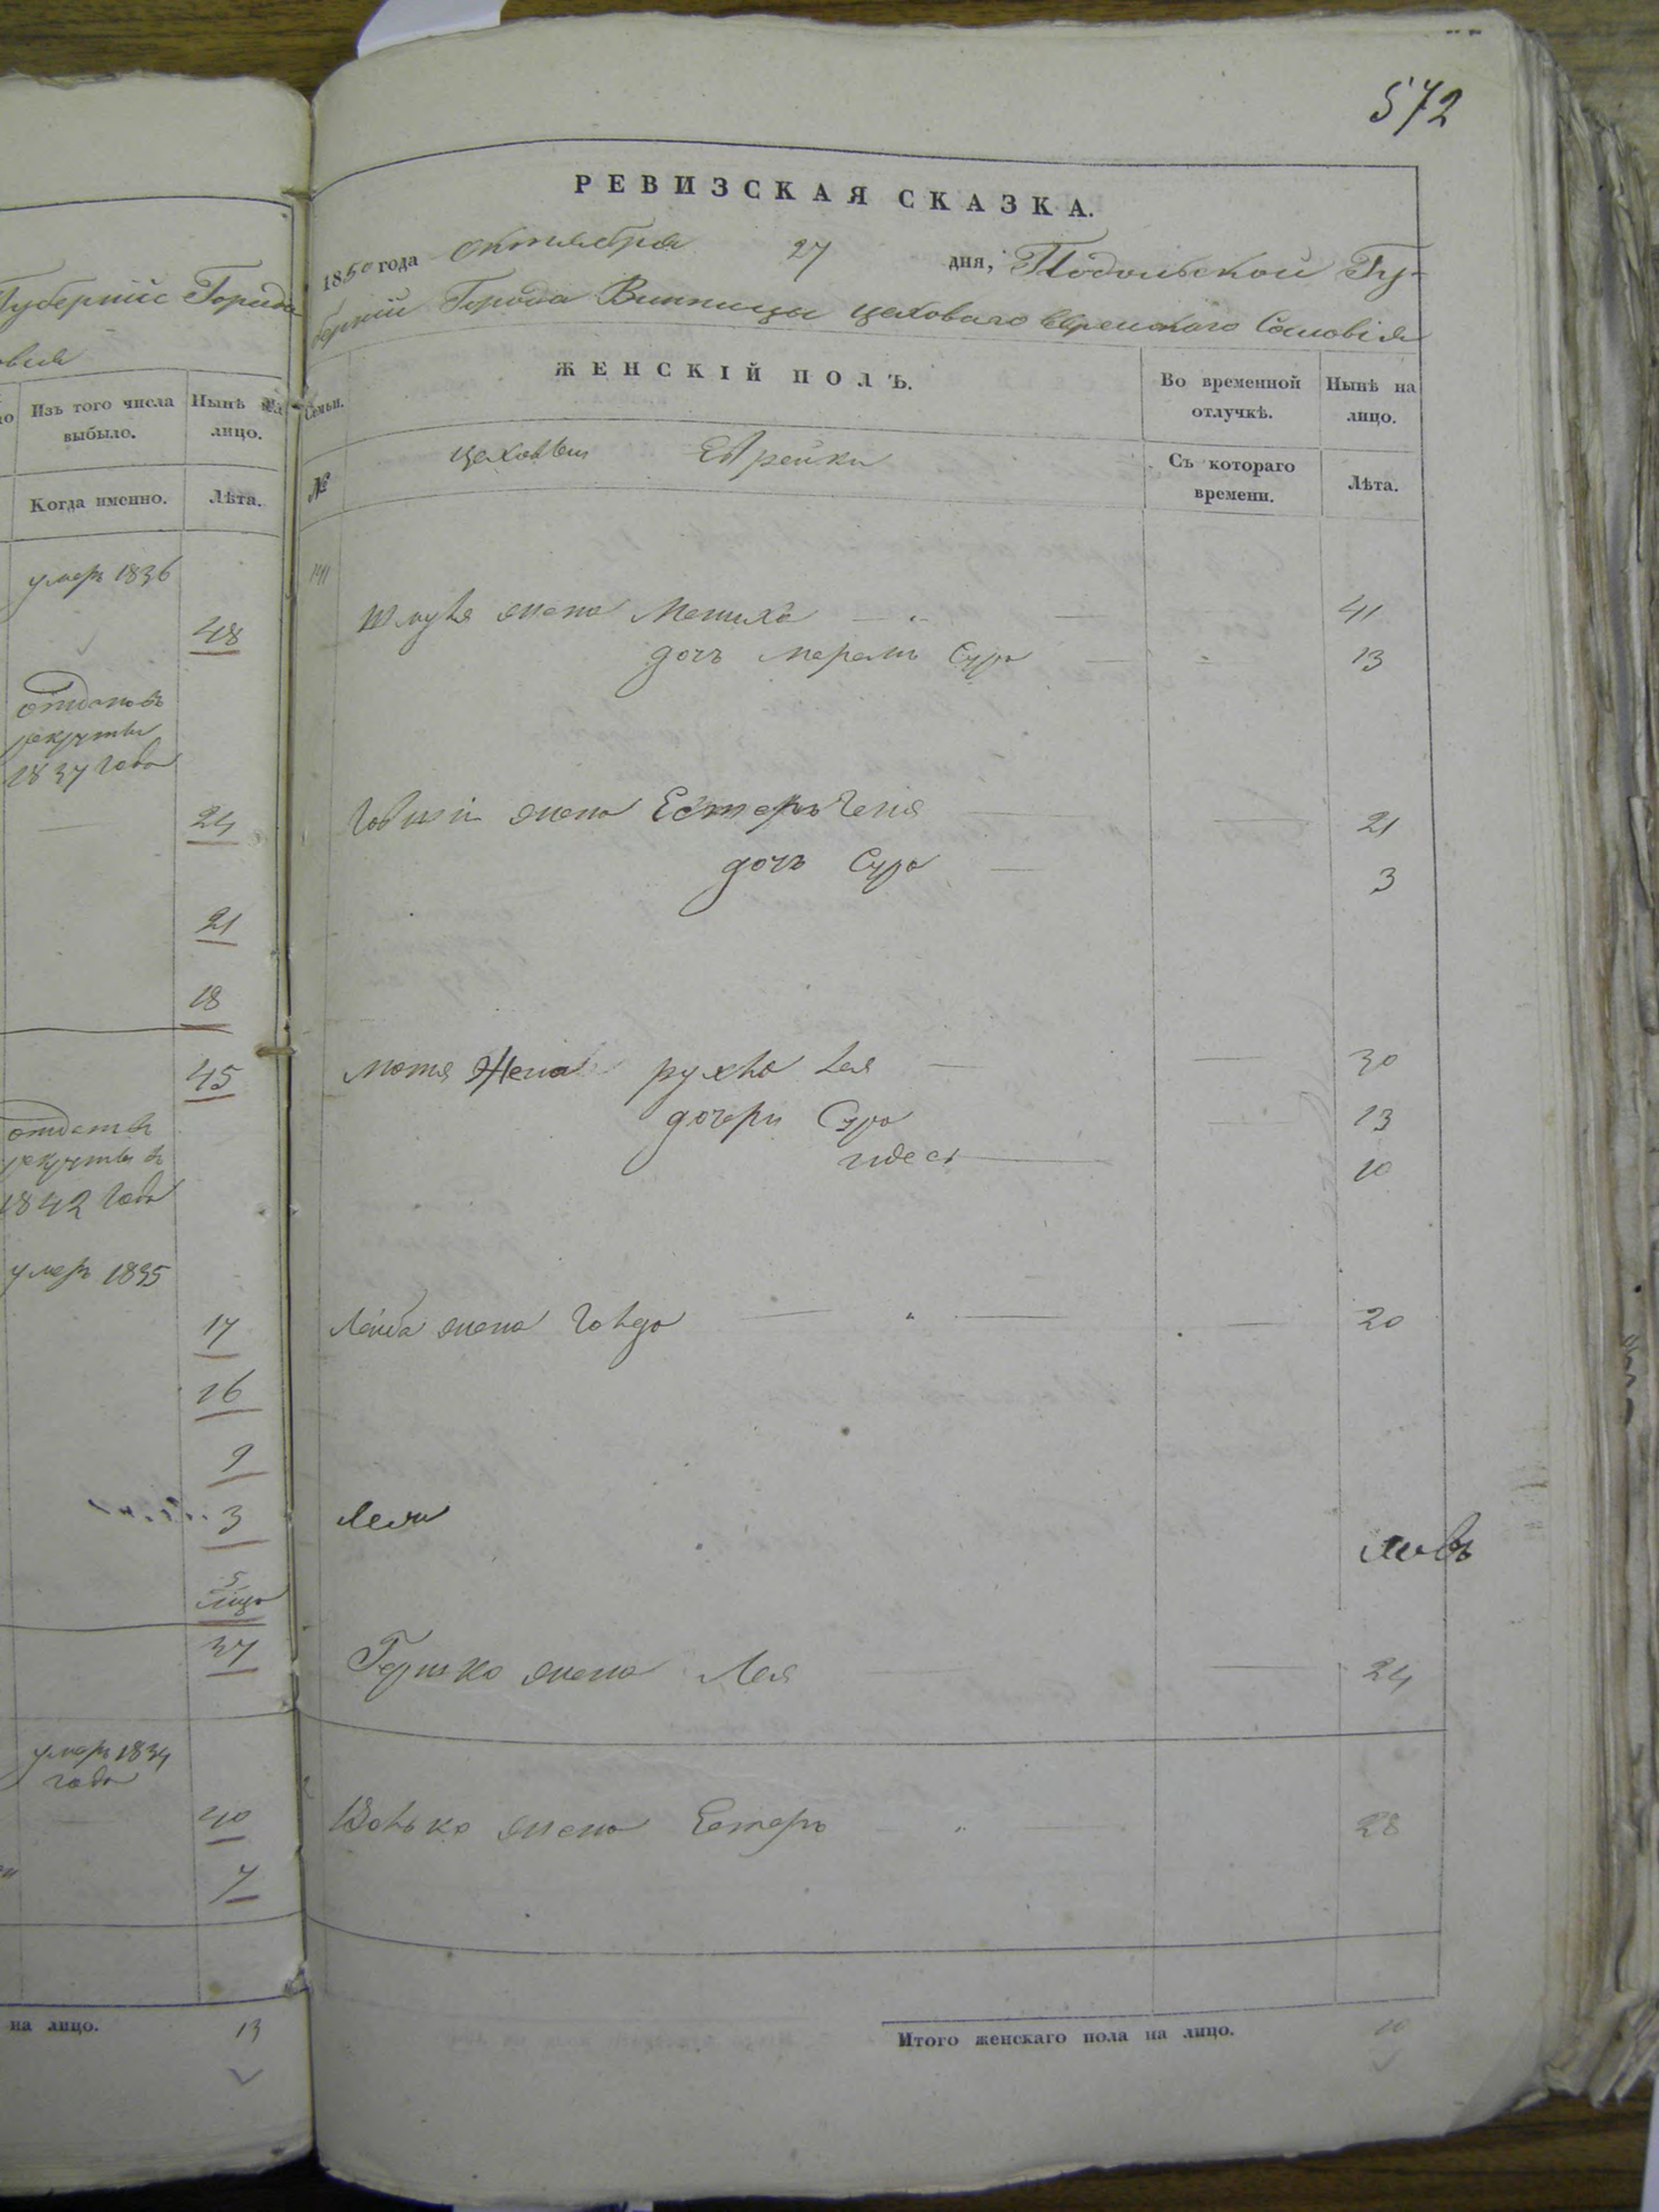 Губерніи Города
вія
Изъ того числа выбыло.
Нынѣ на лицо.
Когда именно.
Лѣта.
умеръ 1836
48
отданъ въ
рекруты
1837 года
24
21
18
45
отданъ въ
рекруты въ
1842 года
умеръ 1835
17
16
9
3
5
лицо
37
умеръ 1834
года
40
7
на лицо.
13
572
РЕВИЗСКАЯ СКАЗКА.
1850 года октября 27 дня, Подольской Гу-
берніи Города Винницы цеховаго Еврейскаго Сословія
Семьи.
ЖЕНСКІЙ ПОЛЪ.
Во временной отлучкѣ.
Нынѣ на лицо.
№
цеховыи Еврейки
Съ котораго времени.
Лѣта.
141
Шмуля жена 41
дочь Сура 13
жена Естеръ 21
дочь Сура 3
Мотя Жена рухля Лея 30
дочери Сура 13
10
Лейба жена Голда 20
Гершко жена Лея 24
Волько жена Естеръ 28
Итого женскаго пола на лицо. 10